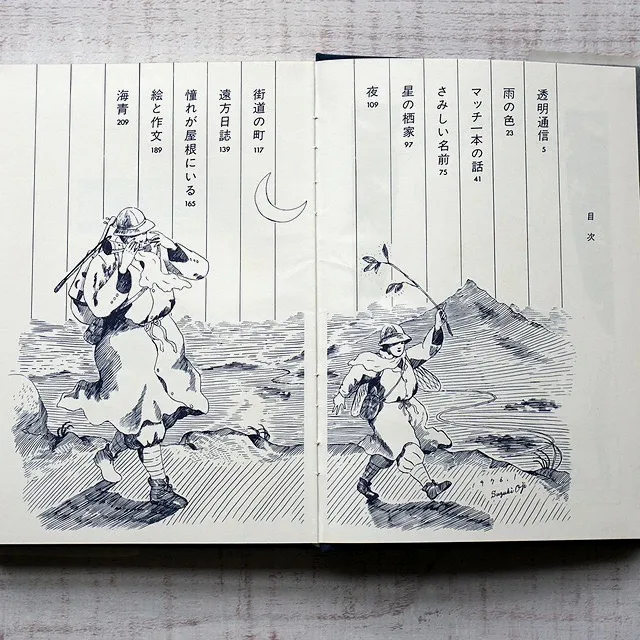 目次
透明通信 5
雨の色 23
マッチ一本の話 41
さみしい名前 75
星の栖家 97
夜 109
街道の町 117
遠方日誌 139
憧れが屋根にいる 165
絵と作文 189
海青 209